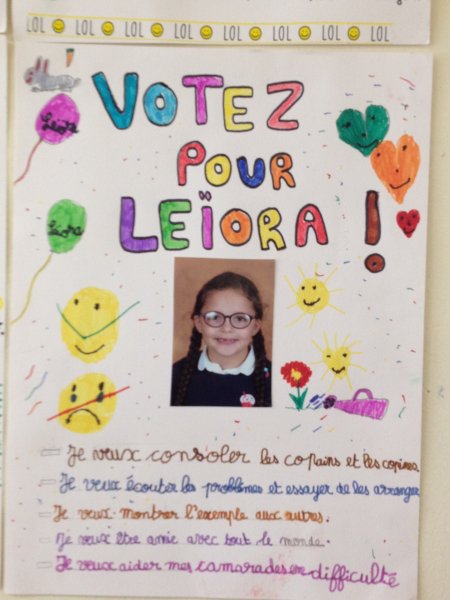 LOL LOL LOL LOL LOL LOL LOL LOL LOL
VOTEZ
POUR
LEÏORA !
Leïora
Leïora
Je veux consoler les copains et les copines
Je veux écouter les problèmes et essayer de les arranger
Je veux montrer l'exemple aux autres.
Je veux être amie avec tout le monde.
Je veux aider mes camarades en difficulté